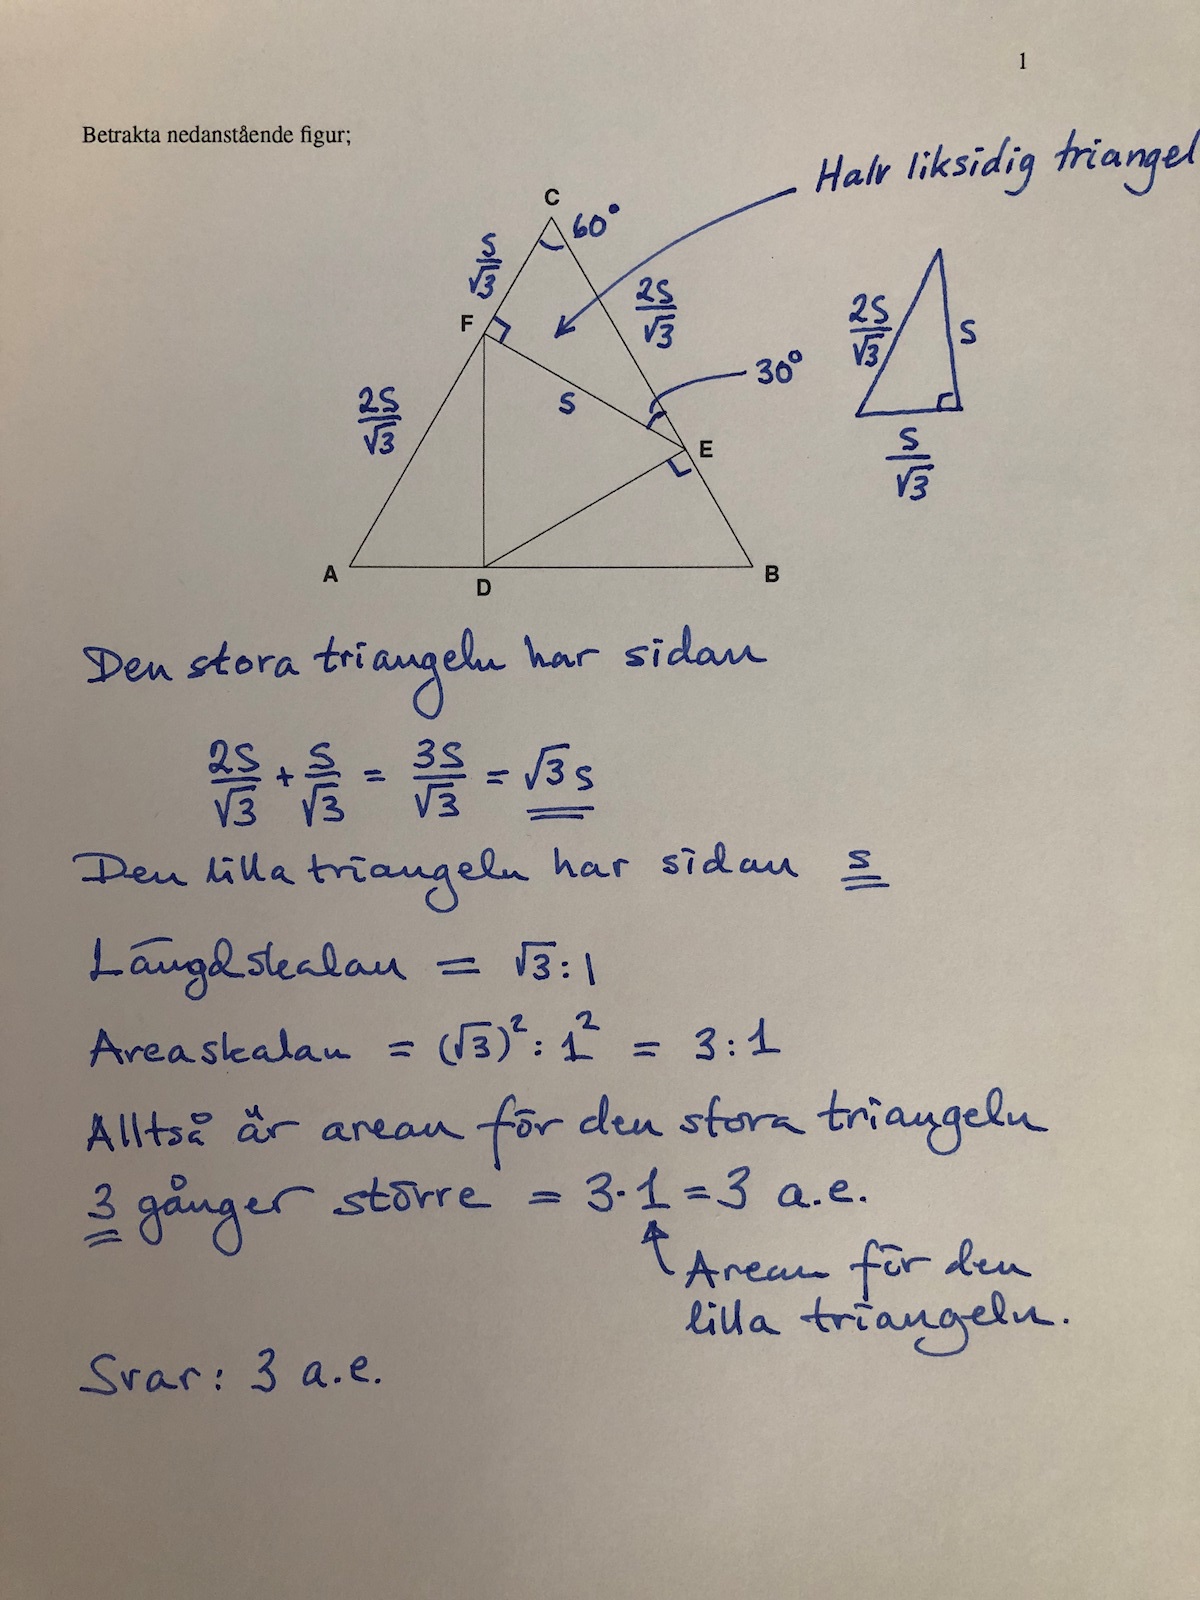 1
Betrakta nedanstående figur;
Halv liksidig triangel
C
60°
s/√3
2s/√3
F
30°
2s/√3
s
E
2s/√3
s
s/√3
A
D
B
Den stora triangeln har sidan
2s/√3 + s/√3 = 3s/√3 = √3 s
Den lilla triangeln har sidan s
Längdskalan = √3 : 1
Areaskalan = (√3)² : 1² = 3 : 1
Alltså är arean för den stora triangeln
3 gånger större = 3·1 = 3 a.e.
Arean för den
lilla triangeln.
Svar: 3 a.e.